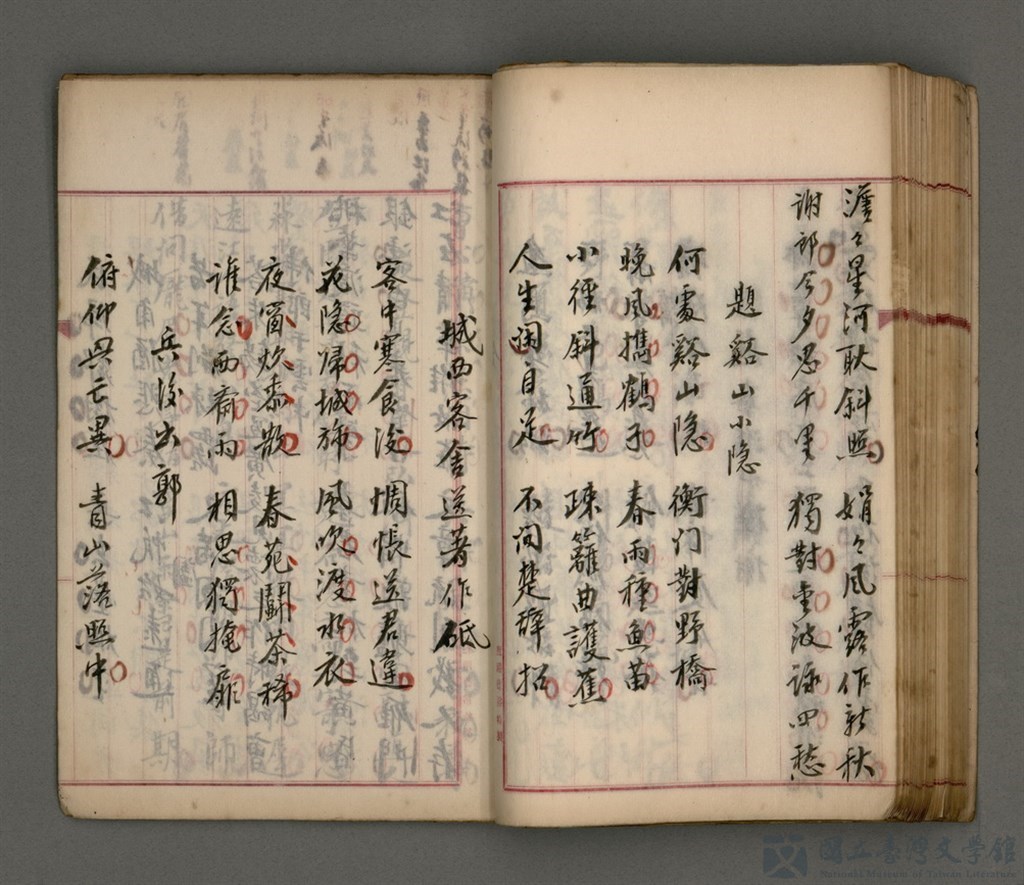 澹々星河耿斜照 娟々風露作新秋
謝郎今夕思千里 獨對金波詠四愁
題谿山小隐
何處谿山隐 衡门對野橋
晚风携鶴子 春雨種魚苗
小徑斜通竹 疎籬曲護蕉
人生闲自足 不问楚辞招
城西客舍送著作砥
客中寒食後 惆悵送君違
花隐帰城旆 風吹渡水衣
夜窗炊黍散 春苑鬭茶稀
谁念西斋雨 相思獨掩扉
兵後出郭
俯仰興亡異 青山落照中
國立臺灣文學館
National Museum of Taiwan Literature